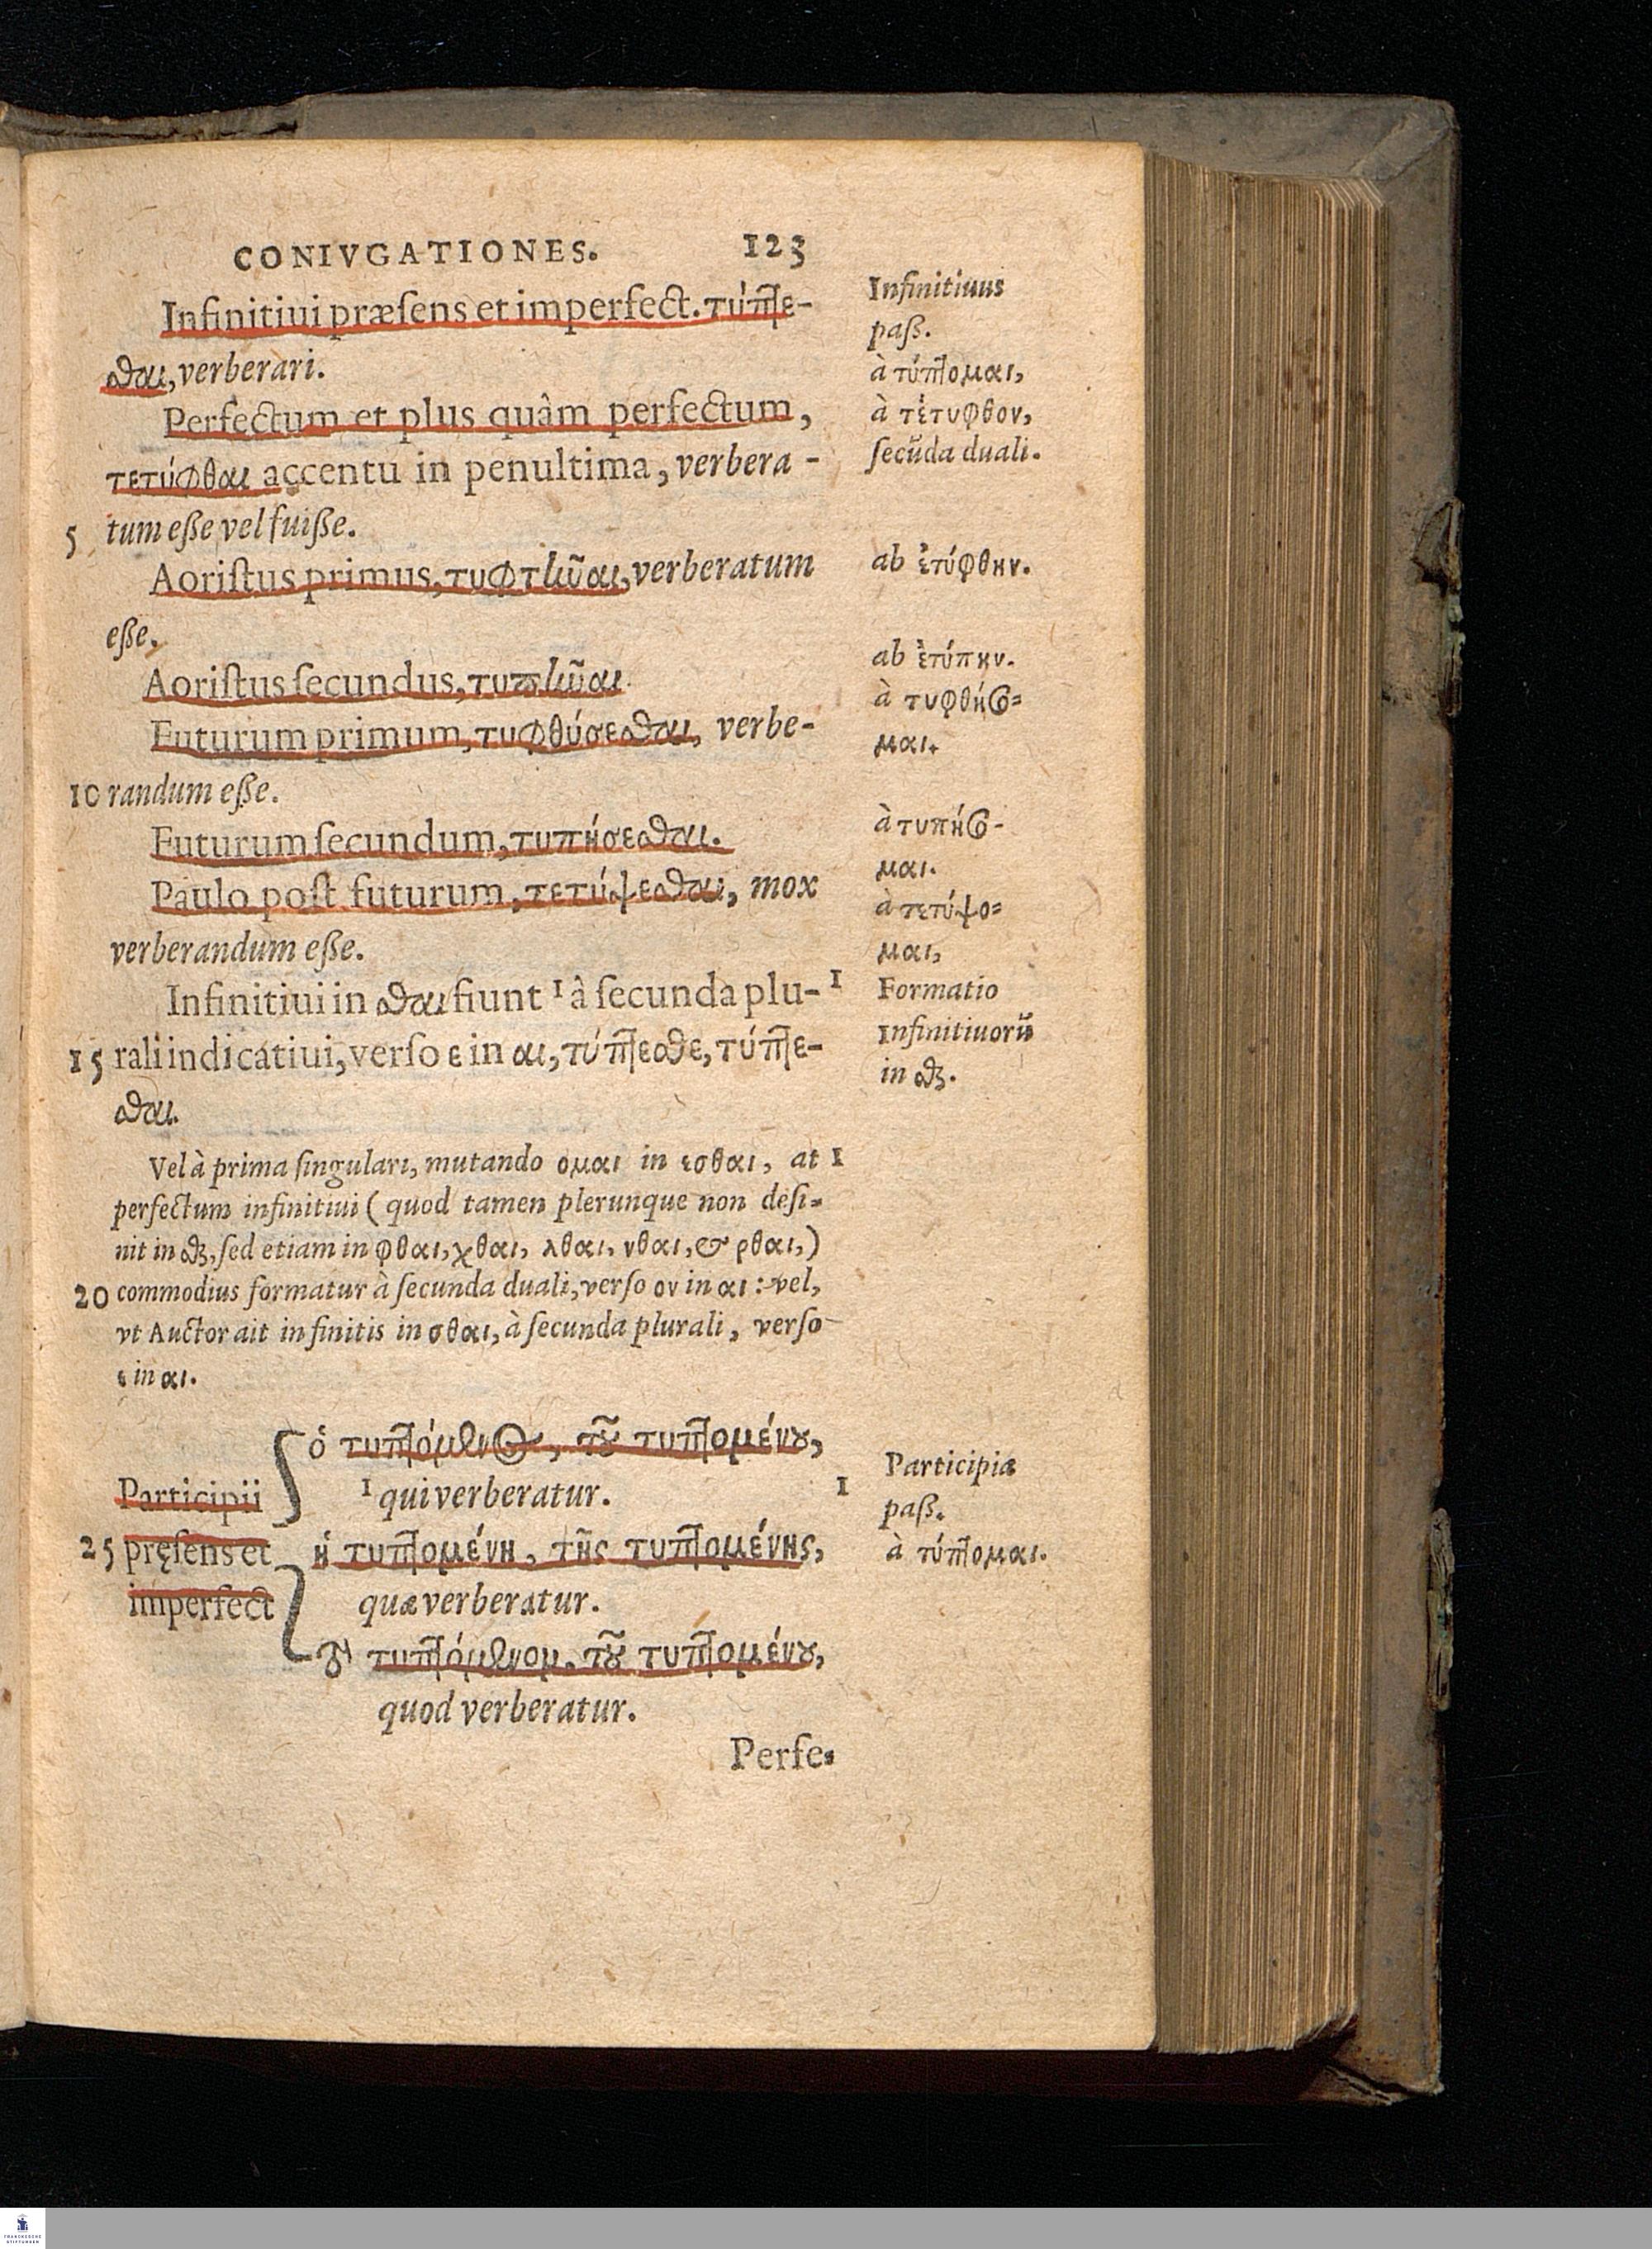 CONIVGATIONES. 123
Infinitiui præſens et imperfect. τύπτε-
σθαι, verberari.
Perfectum et plus quâm perfectum,
τετύφθαι accentu in penultima, verbera-
5 tum eße vel fuiße.
Aoriſtus primus, τυφτῆναι, verberatum
eße.
Aoriſtus ſecundus, τυπῆναι.
Futurum primum, τυφθύσεσθαι, verbe-
10 randum eße.
Futurum ſecundum, τυπήσεσθαι.
Paulo poſt futurum, τετύψεσθαι, mox
verberandum eße.
Infinitiui in σθαι fiunt 1 â ſecunda plu-
15 rali indicatiui, verſo ε in αι, τύπτεσθε, τύπτε-
σθαι.
Vel à prima ſingulari, mutando ομαι in εσθαι, at 1
perfectum infinitiui (quod tamen plerunque non deſi=
nit in σθαι, ſed etiam in φθαι, χθαι, λθαι, νθαι, & ρθαι,)
20 commodius formatur à ſecunda duali, verſo ον in αι: vel,
vt Auctor ait infinitis in σθαι, à ſecunda plurali, verſo
ε in αι.
Participii
25 pręſens et
imperfect
ὁ τυπτόμενος, τοῦ τυπτομένου,
1 qui verberatur.
ἡ τυπτομένη, τῆς τυπτομένης,
quæ verberatur.
τὸ τυπτόμενομ, τοῦ τυπτομένου,
quod verberatur.
Perfe=
Infinitiuus
paß.
à τύπτομαι,
à τέτυφθον,
ſecũda duali.
ab ἐτύφθην.
ab ἐτύπην.
à τυφθήσο=
μαι.
à τυπήσο-
μαι.
à τετύψο=
μαι,
1 Formatio
Infinitiuorũ
in σθαι.
1 Participia
paß.
à τύπτομαι.
FRANCKESCHE
STIFTUNGEN